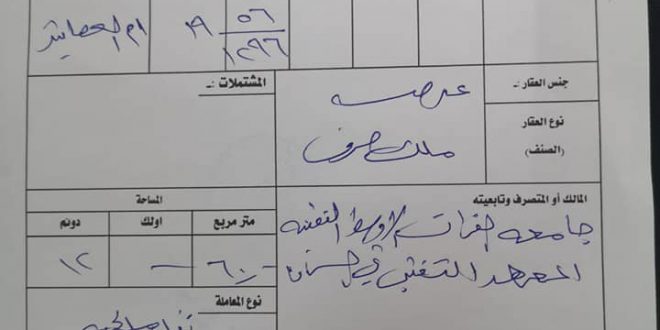 ٥٦
١٢٩٦
١٩
ام العصافير
جنس العقار :ـ
عرصه
المشتملات :ـ
نوع العقار
(الصنف)
ملك صرف
المالك أو المتصرف وتابعيته
جامعه الفرات الاوسط التقنيه
المعهد التقني في
المساحة
متر مربع
اولك
دونم
٦٠٠
١٢
نوع المعاملة